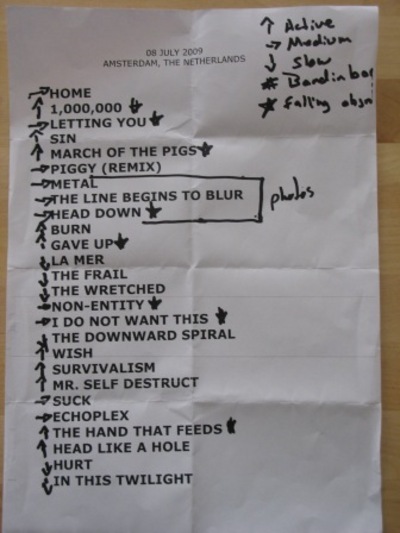 08 JULY 2009
AMSTERDAM, THE NETHERLANDS
↑ Active
→ Medium
↓ Slow
* Band in
★ falling
→ HOME
↑ 1,000,000 ★
→ LETTING YOU ★
↑ SIN
↑ MARCH OF THE PIGS ★
→ PIGGY (REMIX)
→ METAL
→ THE LINE BEGINS TO BLUR
→ HEAD DOWN ★
photos
↑ BURN
↑ GAVE UP ★
↓ LA MER
↓ THE FRAIL
↓ THE WRETCHED
→ NON-ENTITY ★
→ I DO NOT WANT THIS ★
THE DOWNWARD SPIRAL
↑ WISH
↑ SURVIVALISM
↑ MR. SELF DESTRUCT
→ SUCK
→ ECHOPLEX
↑ THE HAND THAT FEEDS ★
↑ HEAD LIKE A HOLE
↓ HURT
↓ IN THIS TWILIGHT